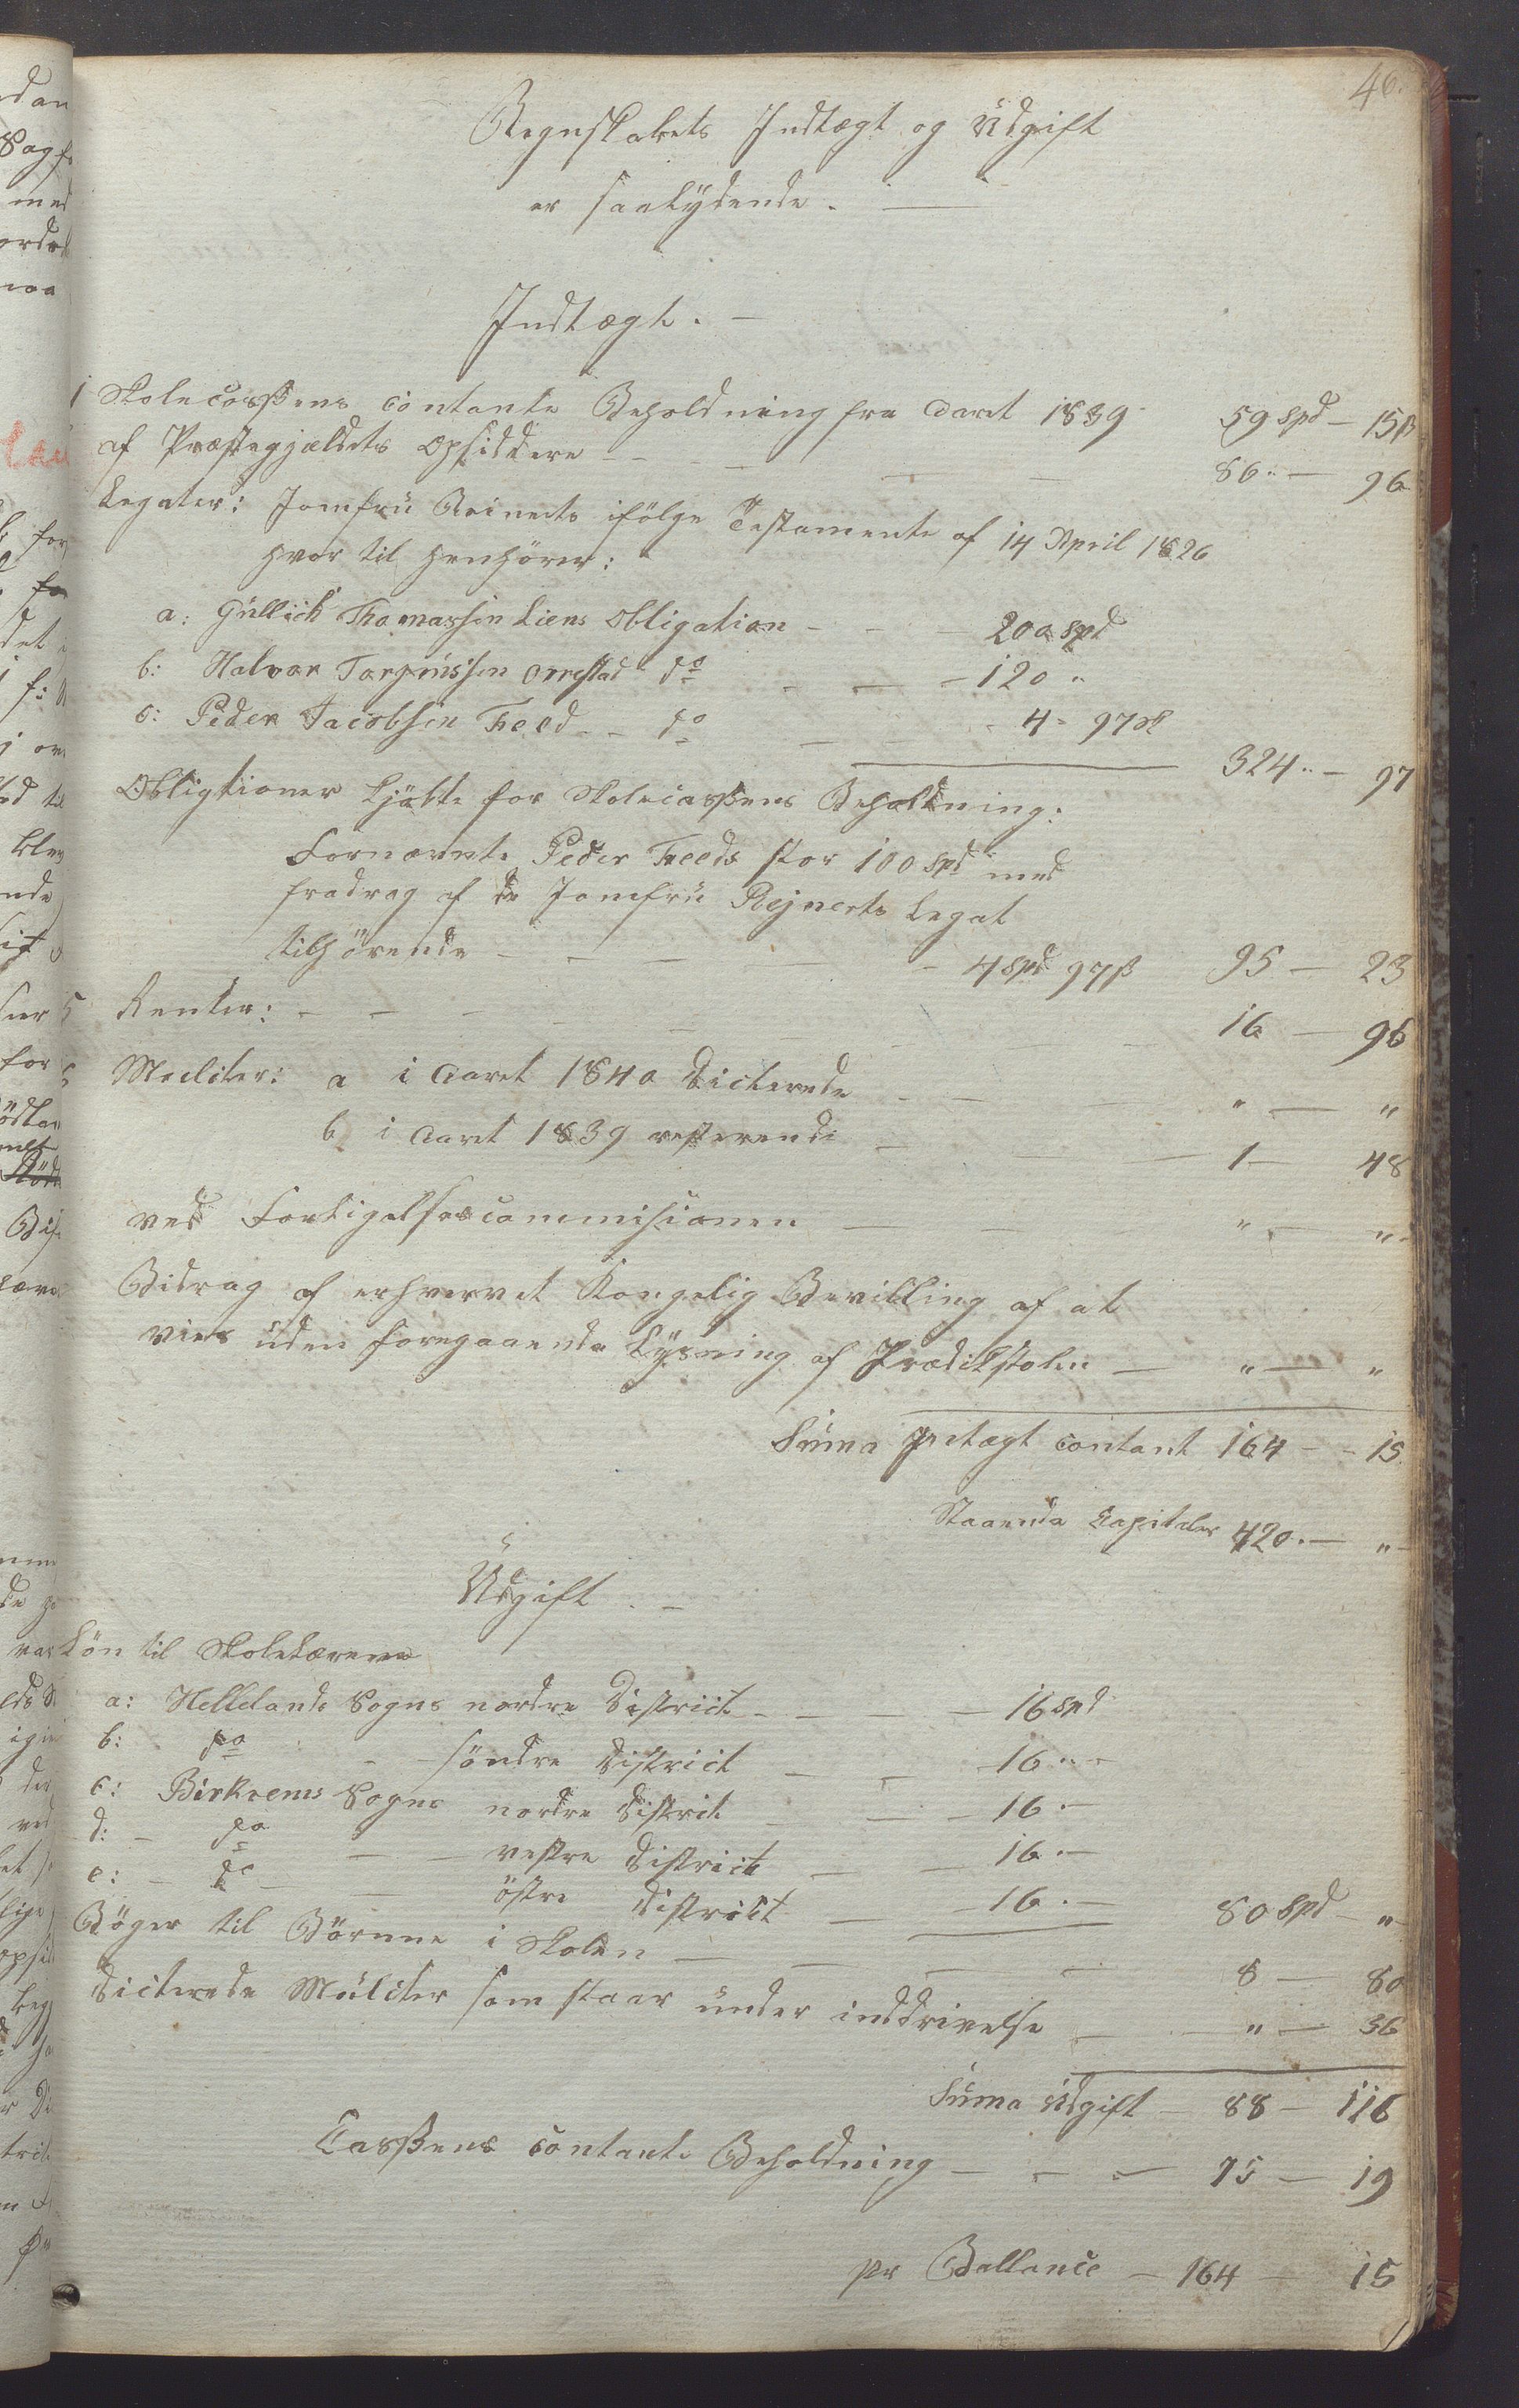 46.
Regnskabets Indtægt og Udgift
er saalydende. —
Indtægt. —
1 Skolecassens contante Beholdning fra Aaret 1839. 59 spd — 15 ß
af Præstegjældets Opsiddere — — — — — 86 " — 96
Legater: Jomfrü Reinerts ifölge Testamente af 14 April 1826
hvor til henhörer:
a: Güllich Thomassen Liens Obligation — — — 200 spd
b: Halvor Torgiüssen Orrestad do — — — 120 "
c: Peder Jacobsen Freed — — do — — 4 - 97 ß
324 " — 97
Obligtioner kjöbte for Skolecassens Beholdning:
Fornævnte Peder Freeds stor 100 Spd med
fradrag af de Jomfrü Rejnerts Legat
tilhörende — — — — — 4 Spd 97 ß 95 — 23
5 Renter: — — — — — — 16 — 96
Mulcter: a i Aaret 1840 dicterede — — — " — "
b i Aaret 1839 resterende — — — 1 — 48
ved Forligelsescommisionen — — " — "
Bidrag af erhvervet Kongelig Bevilling af at
vies üden foregaaende Lysning af Prædikstolen — " — "
Süma Intægt contant 164 — 15.
Staaende Capitaler 420. — "
Udgift. —
Lön til Skolelærerne
a: Hellelands Sogns nordre District — — — 16 spd
b: do — — söndre District — — 16 " —
c: Birkrems Sogns nordre District — — 16 . —
d: — do — — vestre District — — 16 . —
e: — do — — östre District — — 16 . — 80 Spd — "
Böger til Börnene i Skolen — — — — 8 — 80
Dicterede Mülcter som staar ünder inddrivelse — — " — 36
Süma Udgift — 88 — 116
Cassens contante Beholdning — — — 75 — 19
pr Ballance — 164 — 15